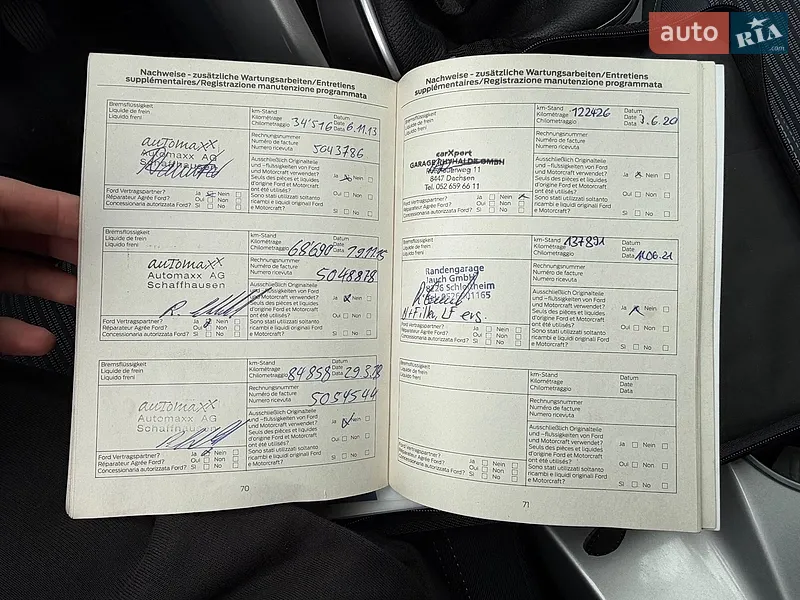 auto RIA
Nachweise - zusätzliche Wartungsarbeiten/Entretiens
supplémentaires/Registrazione manutenzione programmata
Bremsflüssigkeit
Liquide de frein
Liquido freni
km-Stand
Kilométrage
Chilometraggio 34'516
Datum
Date
Data 6.11.13
automaxx
Automaxx AG
Schaffhausen
Rechnungsnummer
Numéro de facture
Numero ricevuta 5043786
Ausschließlich Originalteile
und -flüssigkeiten von Ford
und Motorcraft verwendet?
Seuls des pièces et liquides
d'origine Ford et Motorcraft
ont été utilisés?
Sono stati utilizzati soltanto
ricambi e liquidi originali Ford
e Motorcraft?
Ja Nein
Oui Non
Sì No
Ford Vertragspartner?
Réparateur Agrée Ford?
Concessionaria autorizzata Ford?
Ja Nein
Oui Non
Sì No
Bremsflüssigkeit
Liquide de frein
Liquido freni
km-Stand
Kilométrage
Chilometraggio 68690
Datum
Date
Data
automaxx
Automaxx AG
Schaffhausen
Rechnungsnummer
Numéro de facture
Numero ricevuta 5048878
Ausschließlich Originalteile
und -flüssigkeiten von Ford
und Motorcraft verwendet?
Seuls des pièces et liquides
d'origine Ford et Motorcraft
ont été utilisés?
Sono stati utilizzati soltanto
ricambi e liquidi originali Ford
e Motorcraft?
Ja Nein
Oui Non
Sì No
Ford Vertragspartner?
Réparateur Agrée Ford?
Concessionaria autorizzata Ford?
Ja Nein
Oui Non
Sì No
Bremsflüssigkeit
Liquide de frein
Liquido freni
km-Stand
Kilométrage
Chilometraggio 84858
Datum
Date
Data 29.3.18
automaxx
Automaxx AG
Schaffhausen
Rechnungsnummer
Numéro de facture
Numero ricevuta 5054544
Ausschließlich Originalteile
und -flüssigkeiten von Ford
und Motorcraft verwendet?
Seuls des pièces et liquides
d'origine Ford et Motorcraft
ont été utilisés?
Sono stati utilizzati soltanto
ricambi e liquidi originali Ford
e Motorcraft?
Ja Nein
Oui Non
Sì No
Ford Vertragspartner?
Réparateur Agrée Ford?
Concessionaria autorizzata Ford?
Ja Nein
Oui Non
Sì No
70
Nachweise - zusätzliche Wartungsarbeiten/Entretiens
supplémentaires/Registrazione manutenzione programmata
Bremsflüssigkeit
Liquide de frein
Liquido freni
km-Stand
Kilométrage
Chilometraggio 122426
Datum
Date
Data 3.6.20
carXpert
8447 Dachsen
Tel. 052 659 66 11
Rechnungsnummer
Numéro de facture
Numero ricevuta
Ausschließlich Originalteile
und -flüssigkeiten von Ford
und Motorcraft verwendet?
Seuls des pièces et liquides
d'origine Ford et Motorcraft
ont été utilisés?
Sono stati utilizzati soltanto
ricambi e liquidi originali Ford
e Motorcraft?
Ja Nein
Oui Non
Sì No
Ford Vertragspartner?
Réparateur Agrée Ford?
Concessionaria autorizzata Ford?
Ja Nein
Oui Non
Sì No
Bremsflüssigkeit
Liquide de frein
Liquido freni
km-Stand
Kilométrage
Chilometraggio 137891
Datum
Date
Data 11.06.21
Randengarage
GmbH
Rechnungsnummer
Numéro de facture
Numero ricevuta
Ausschließlich Originalteile
und -flüssigkeiten von Ford
und Motorcraft verwendet?
Seuls des pièces et liquides
d'origine Ford et Motorcraft
ont été utilisés?
Sono stati utilizzati soltanto
ricambi e liquidi originali Ford
e Motorcraft?
Ja Nein
Oui Non
Sì No
Ford Vertragspartner?
Réparateur Agrée Ford?
Concessionaria autorizzata Ford?
Ja Nein
Oui Non
Sì No
Bremsflüssigkeit
Liquide de frein
Liquido freni
km-Stand
Kilométrage
Chilometraggio
Datum
Date
Data
Rechnungsnummer
Numéro de facture
Numero ricevuta
Ausschließlich Originalteile
und -flüssigkeiten von Ford
und Motorcraft verwendet?
Seuls des pièces et liquides
d'origine Ford et Motorcraft
ont été utilisés?
Sono stati utilizzati soltanto
ricambi e liquidi originali Ford
e Motorcraft?
Ja Nein
Oui Non
Sì No
Ford Vertragspartner?
Réparateur Agrée Ford?
Concessionaria autorizzata Ford?
Ja Nein
Oui Non
Sì No
71